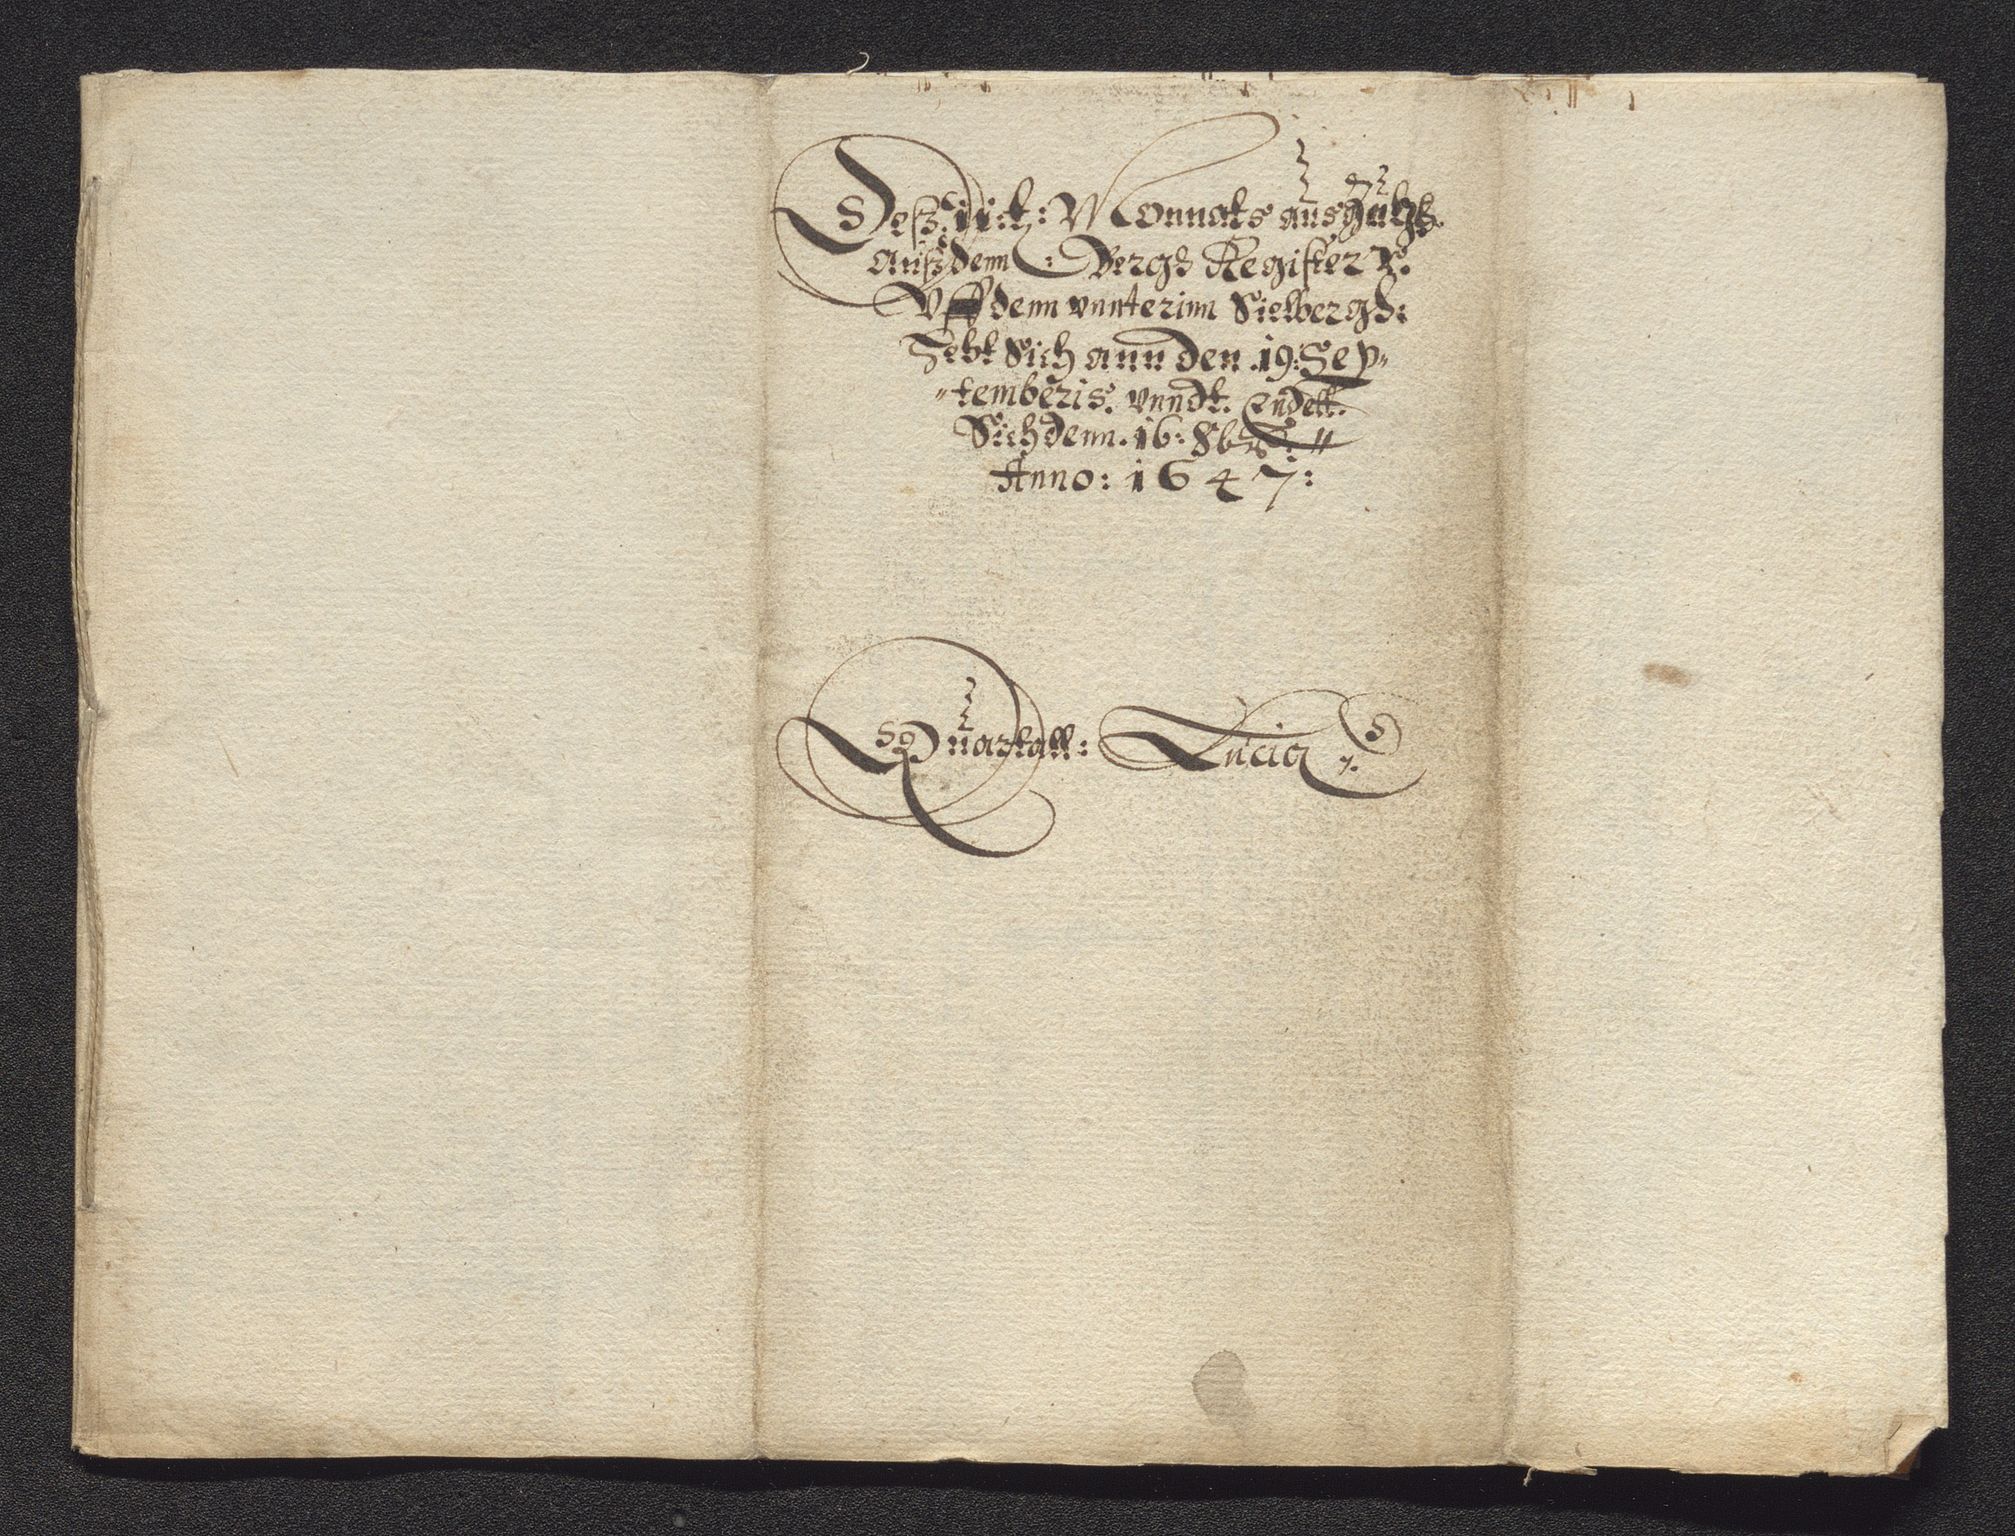 Desz. 11t: Monnats auszugkh
Ausz denn: Bergs Register R.
Vff denn vnnterinn Sielbergs:
Hebt Sich ann den .19: Sep-
-temberis. vnndt. Endett.
Sich denn. 16: 8bris.
Anno: 1647:
Quartall: Lucia